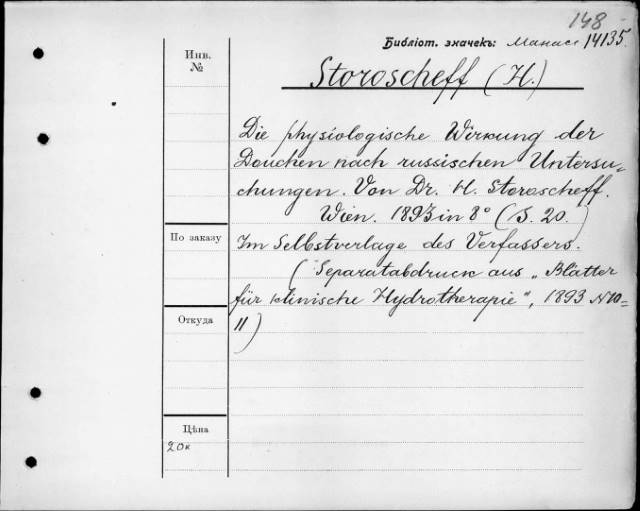 148
Библіот. значекъ: Манас 14135.
Инв. №
Storoscheff (H.)
Die physiologische Wirkung der
Douchen nach russischen Untersu-
chungen. Von Dr. H. Storoscheff.
Wien. 1893 in 8° (S. 20.)
По заказу
Im Selbstverlage des Verfassers.
(Separatabdruck aus „Blätter
für klinische Hydrotherapie“, 1893 N 10-
Откуда
11)
Цѣна
20к